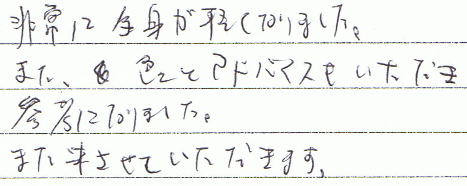 非常に全身が軽くなりました。
また、色々とアドバイスもいただき
参考になりました。
また来させていただきます。